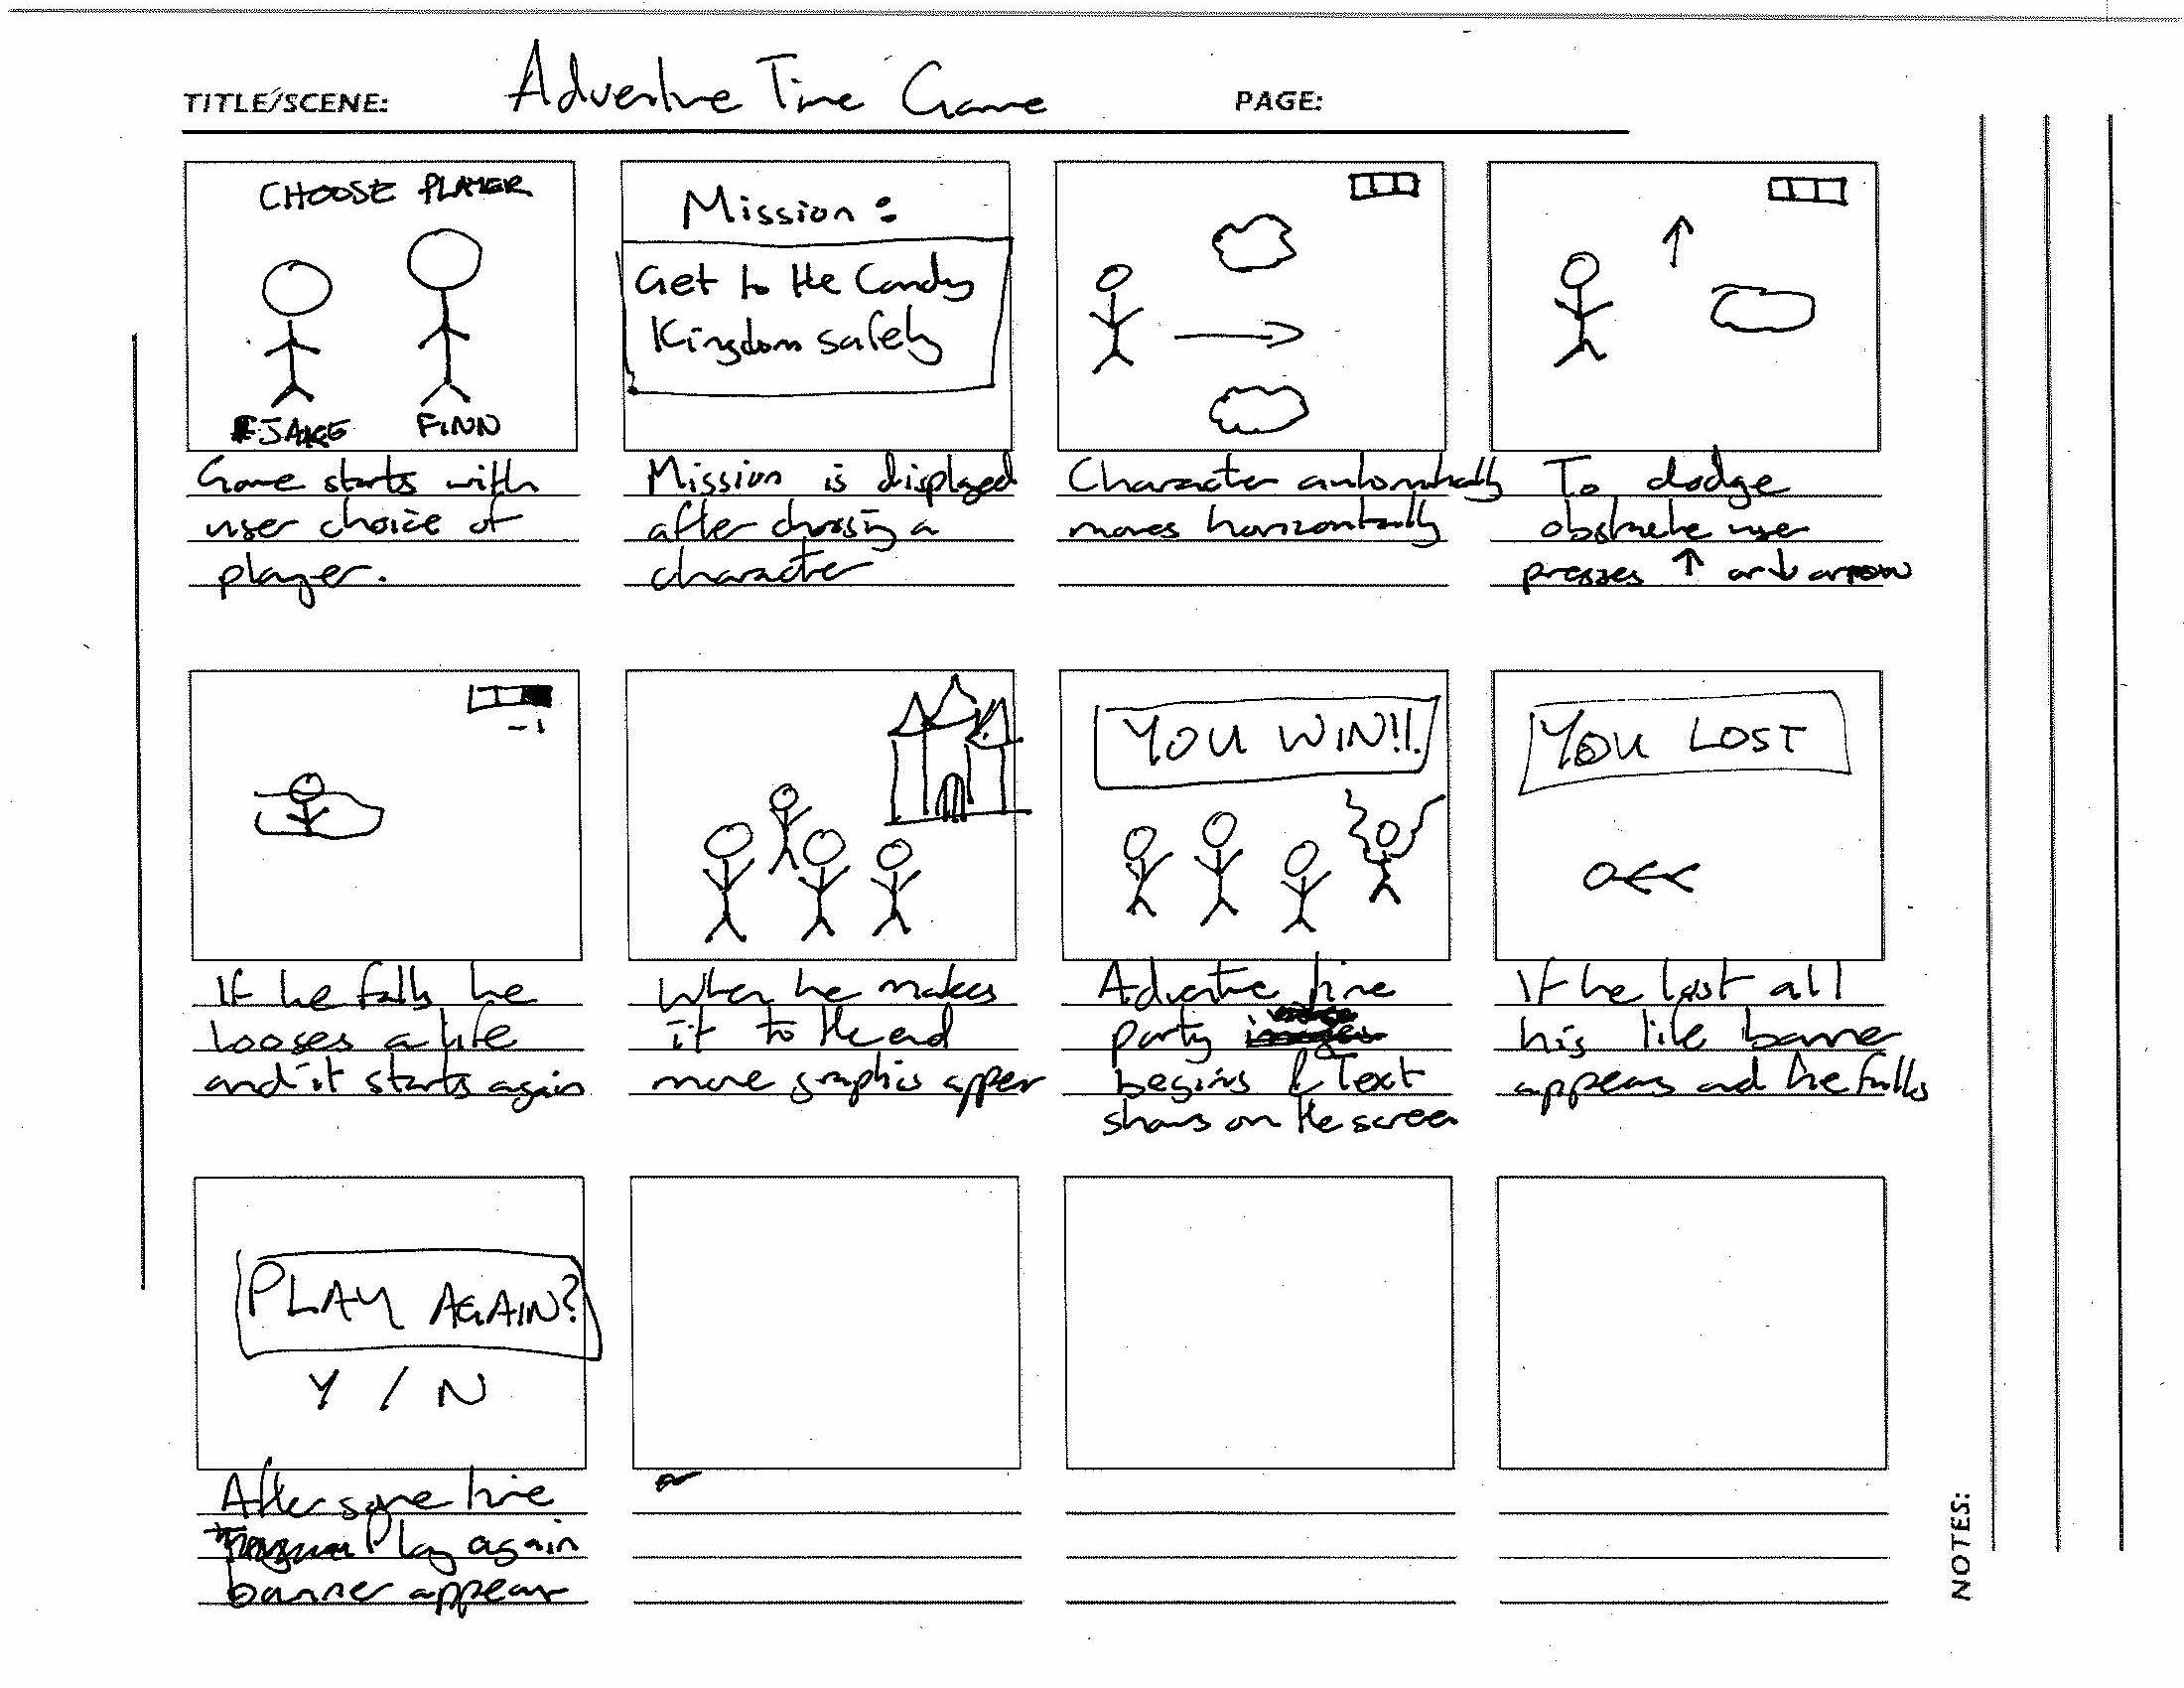 TITLE/SCENE: Adventure Time Game PAGE:
CHOOSE PLAYER
JAKE FINN
Game starts with
user choice of
player.
Mission:
Get to the Candy
Kingdom safely
Mission is displayed
after choosing a
character
Character automatically
moves horizontally
To dodge
obstacle user
presses ↑ or ↓ arrow
-1
If he falls he
looses a life
and it starts again
When he makes
it to the end
more graphics appear
YOU WIN!!.
Adventure time
party
begins & Text
shows on the screen
YOU LOST
If he lost all
his life banner
appears and he falls
PLAY AGAIN?
Y / N
After some time
Play again
banner appear
NOTES: